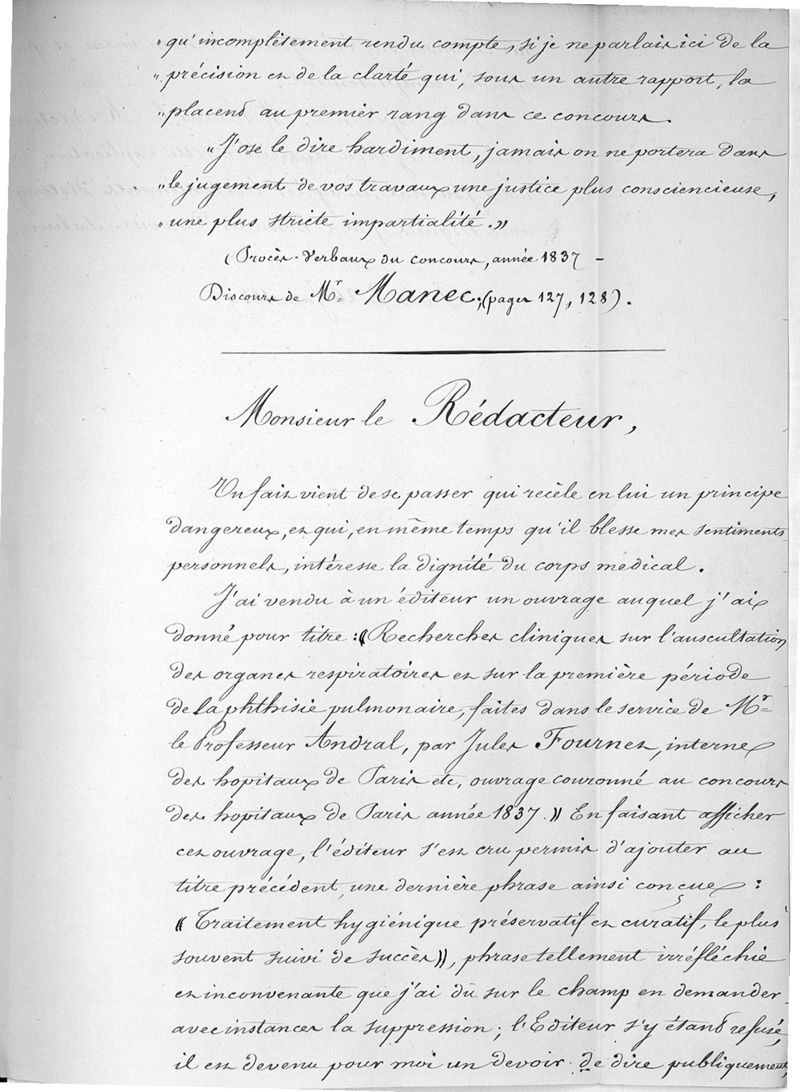 "qu'incomplètement rendu compte, si je ne parlais ici de la
"précision et de la clarté qui, sous un autre rapport, la
"placent au premier rang dans ce concours.
"J'ose le dire hardiment, jamais on ne portera dans
"le jugement de vos travaux une justice plus consciencieuse,
"une plus stricte impartialité."
(Procès-Verbaux du concours, année 1837 –
Discours de Mr. Manec; (pages 127, 128).
Monsieur le Rédacteur,
Un fait vient de se passer qui recèle en lui un principe
dangereux, et qui, en même temps qu'il blesse mes sentiments
personnels, intéresse la dignité du corps médical.
J'ai vendu à un éditeur un ouvrage auquel j'ai
donné pour titre: «Recherches cliniques sur l'auscultation
des organes respiratoires et sur la première période
de la phthisie pulmonaire, faites dans le service de Mr
le Professeur Andral, par Jules Fournet, interne
des hopitaux de Paris etc, ouvrage couronné au concours
des hopitaux de Paris année 1837.» En faisant afficher
cet ouvrage, l'éditeur s'est cru permis d'ajouter au
titre précédent, une dernière phrase ainsi conçue:
«Traitement hygiénique préservatif et curatif, le plus
souvent suivi de succès», phrase tellement irréfléchie
et inconvenante que j'ai dû sur le champ en demander
avec instances la suppression; l'Editeur s'y étant refusé,
il est devenu pour moi un devoir de dire publiquement,